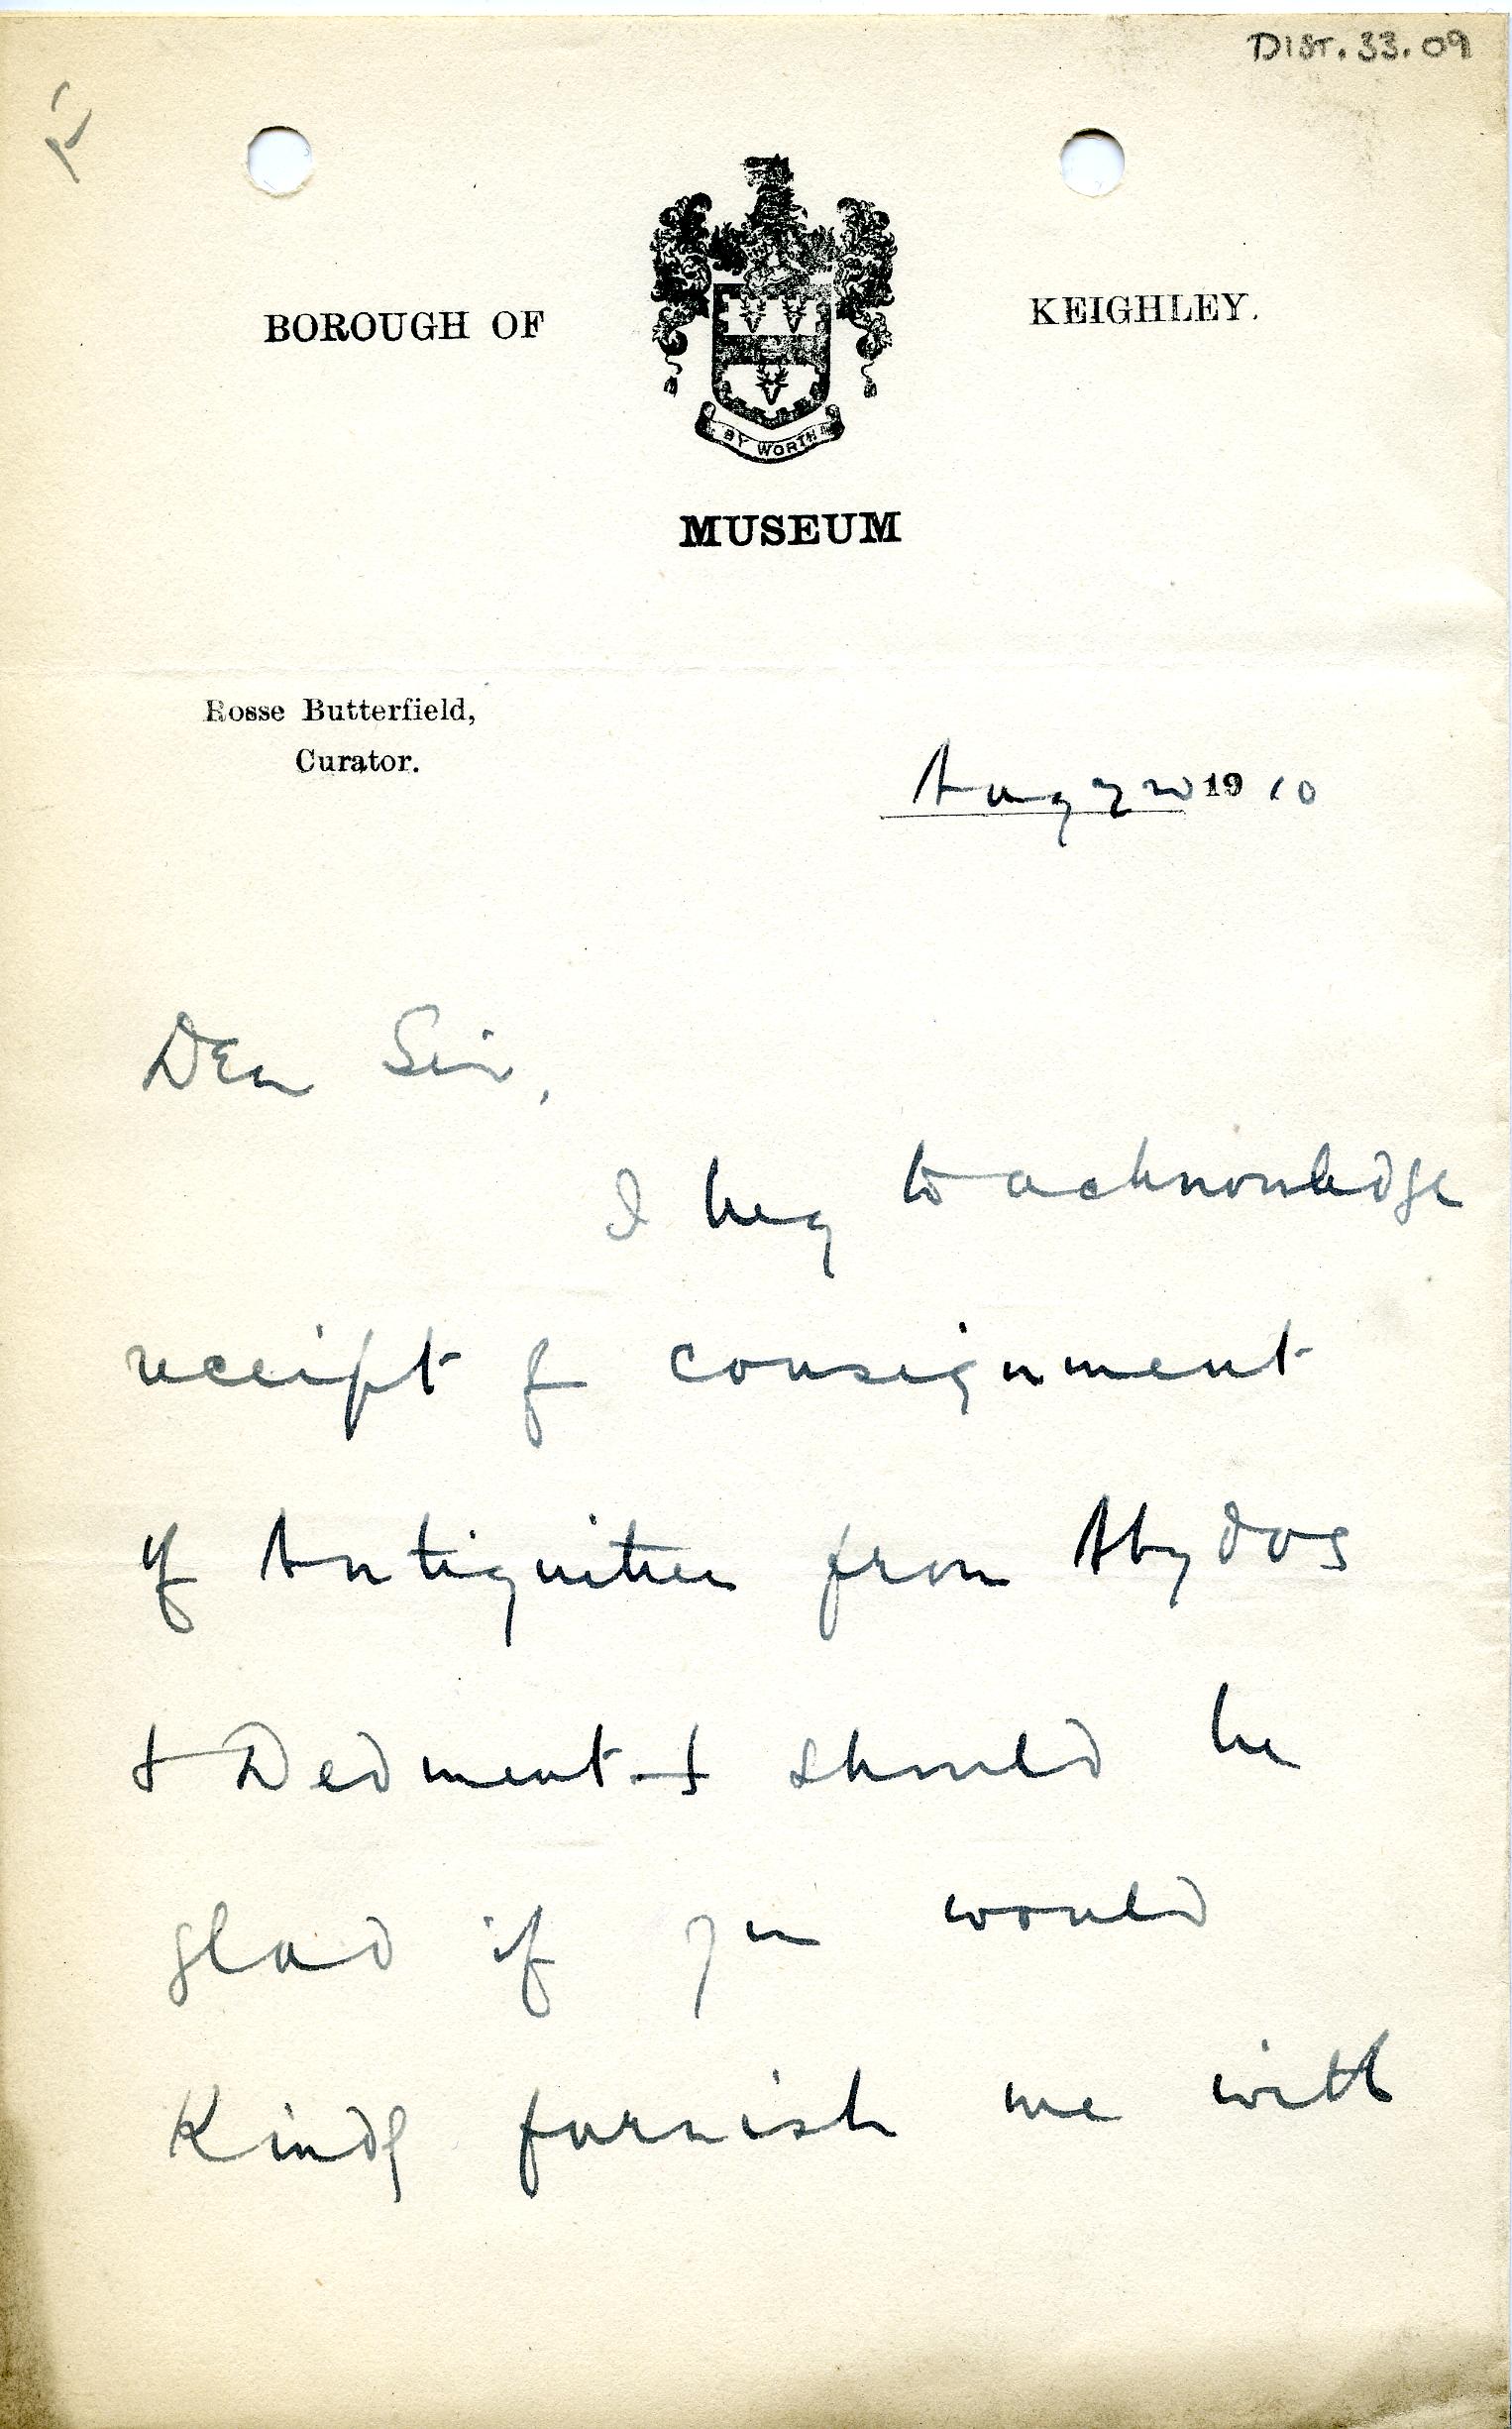 DIST. 33.09
BOROUGH OF KEIGHLEY.
BY WORTH
MUSEUM
Rosse Butterfield,
Curator.
Aug 1910
Dear Sir,
I beg to acknowledge
receipt of consignment
of Antiquities from Abydos
& Dedment & should be
glad if you would
Kindly furnish me with